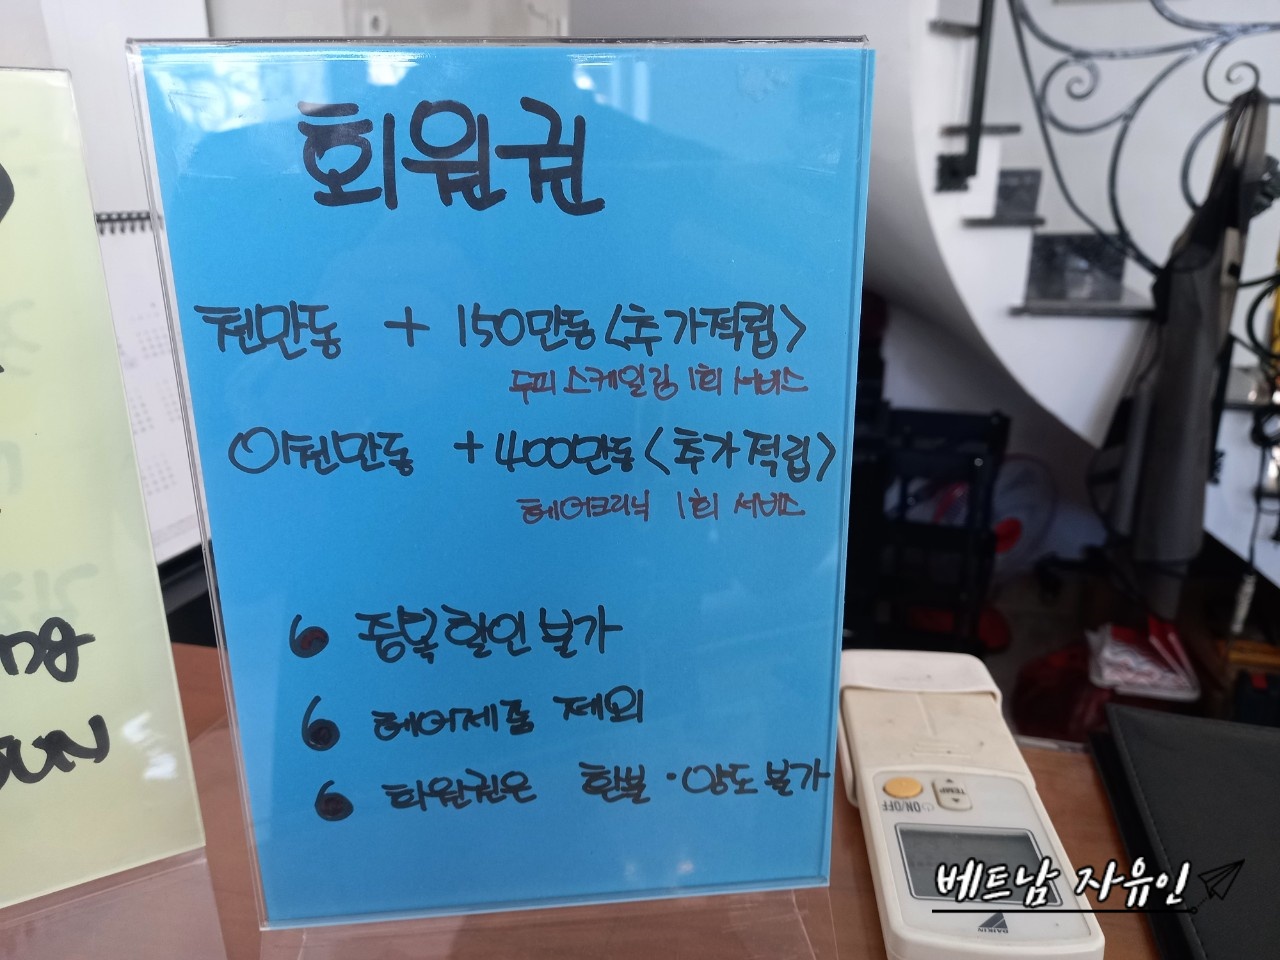 회원권
천만동 + 150만동 <추가적립>
두피 스케일링 1회 서비스
이천만동 + 400만동 <추가적립>
헤어크리닉 1회 서비스
중복할인 불가
헤어제품 제외
회원권은 환불·양도 불가
ng
SUN
ON/OFF
TEMP
DAIKIN
베트남 자유인